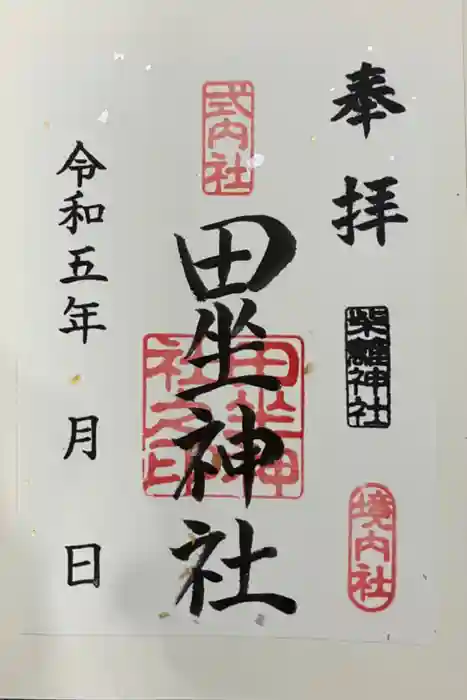 奉拝
柴籬神社
境内社
式内社
田坐神社
田坐神社之印
令和五年 月 日